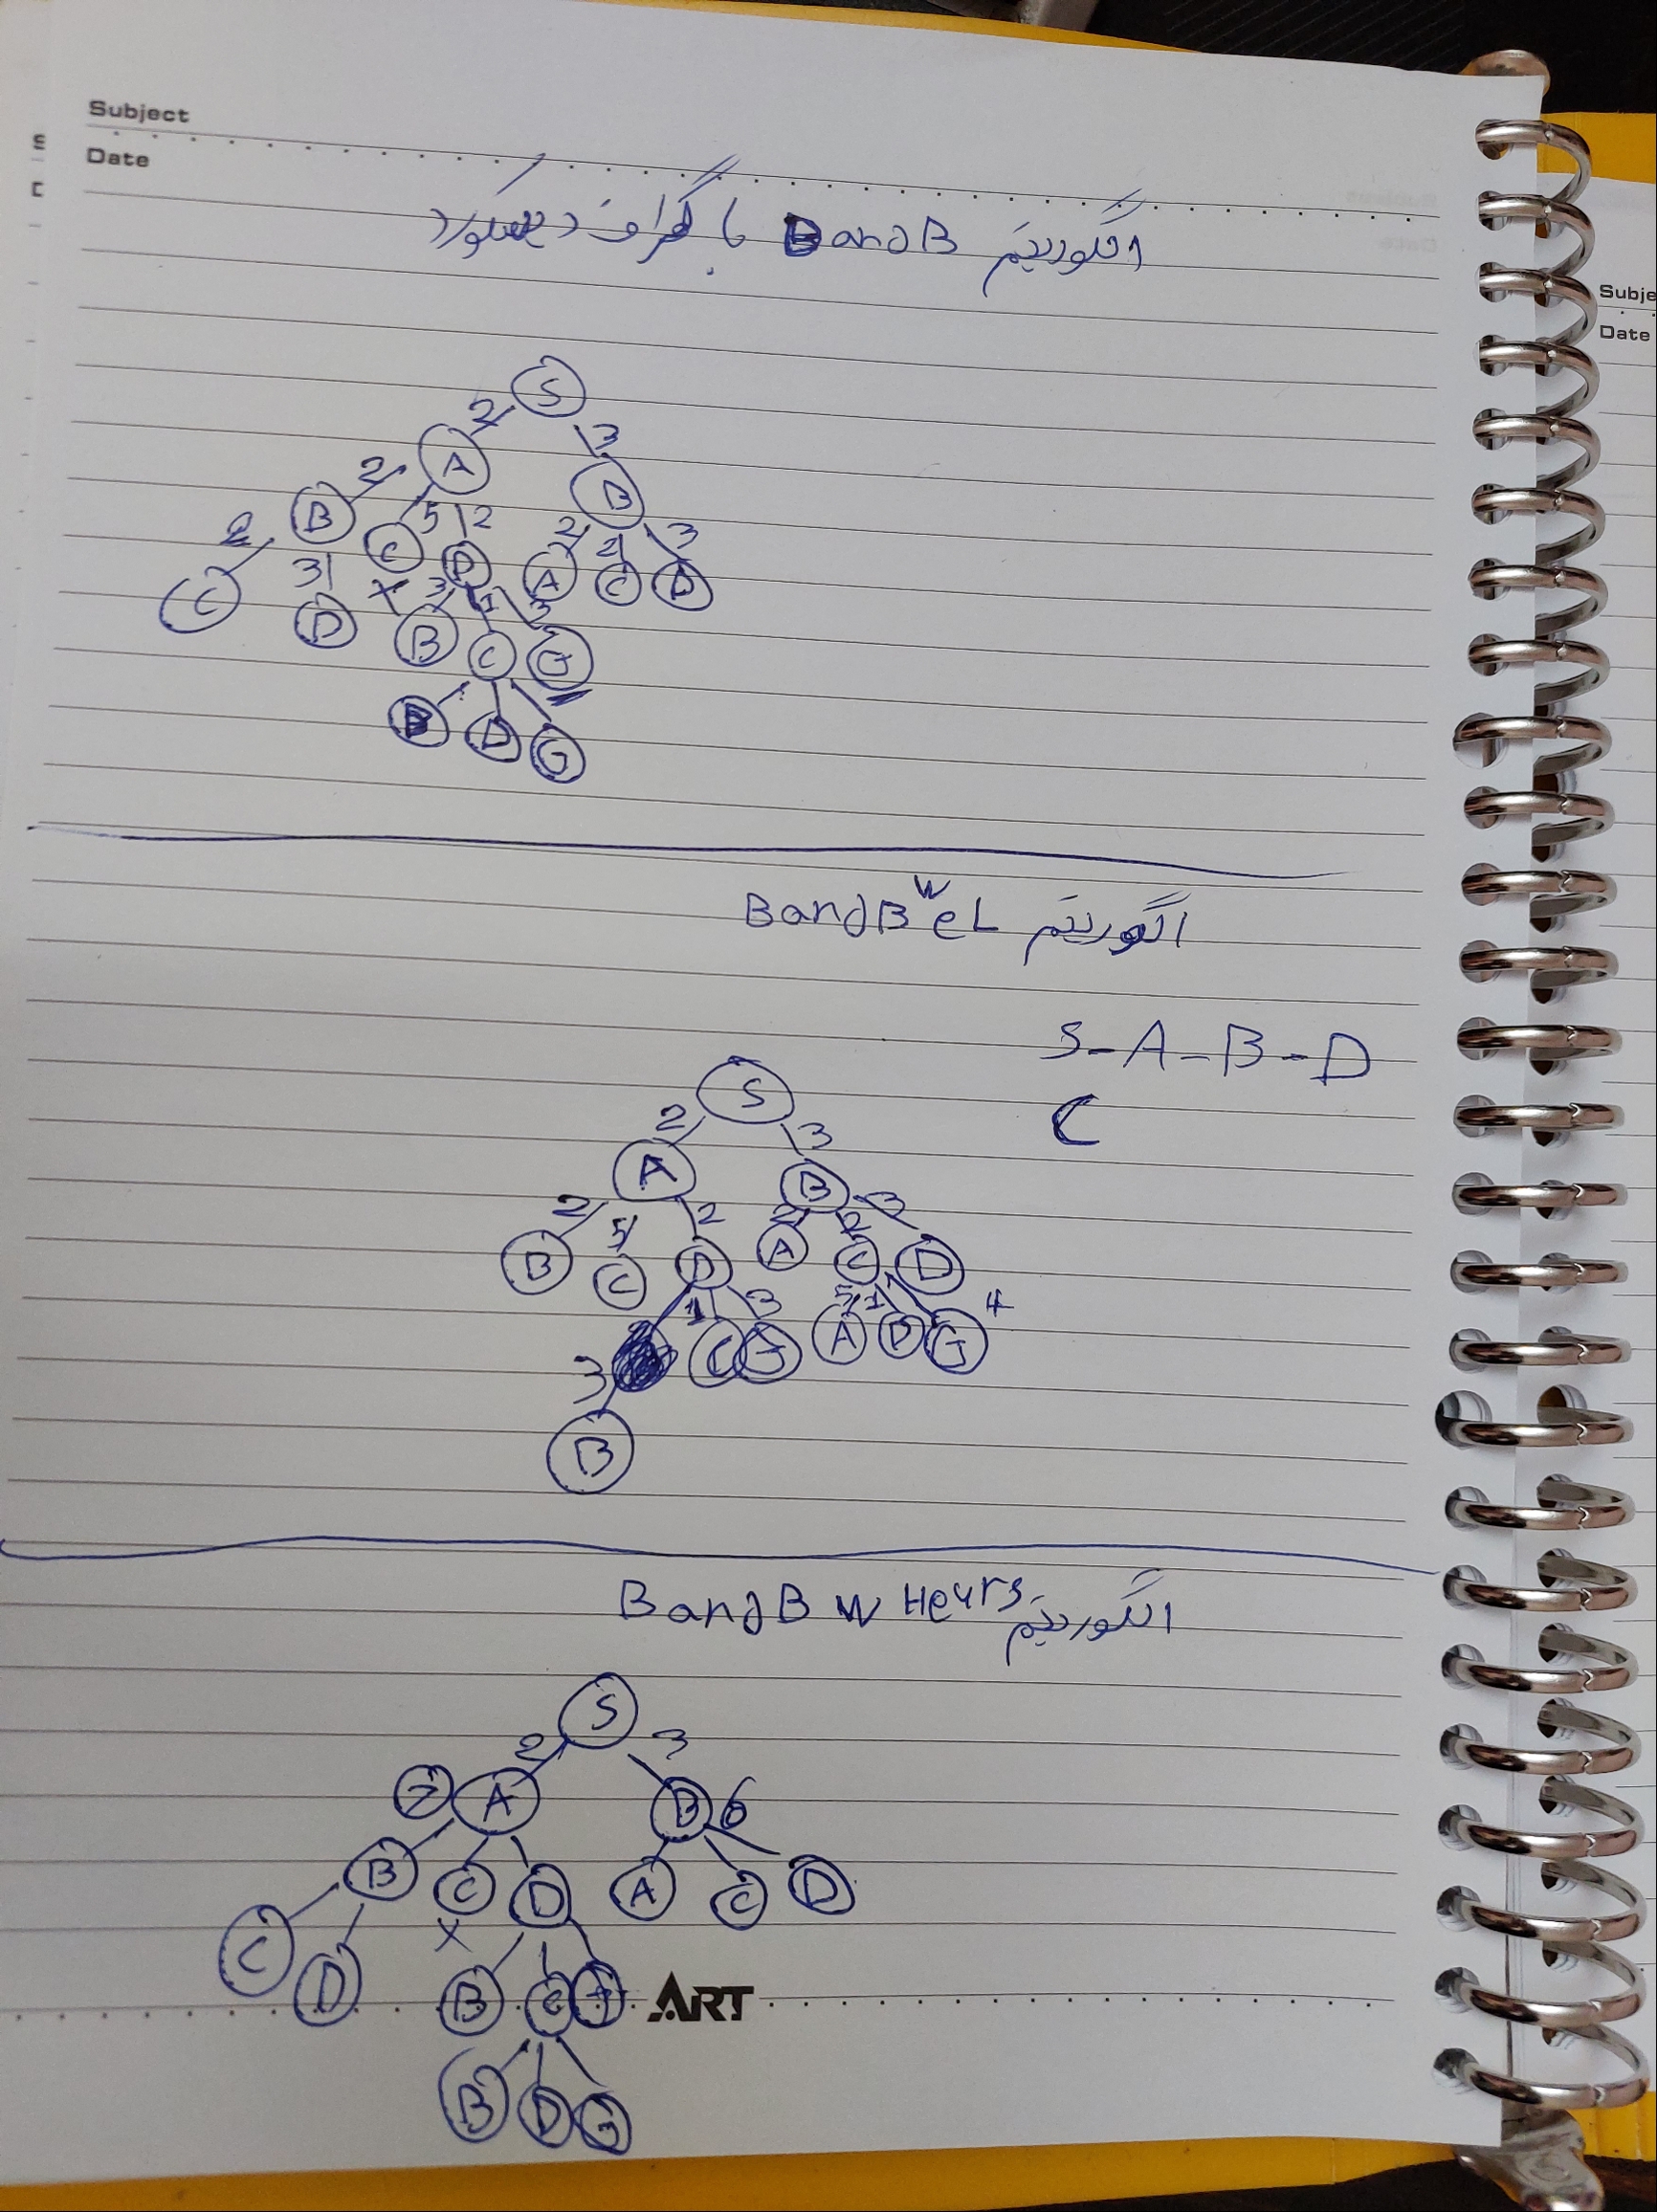 Subject
Date
الگوریتم BandB با گراف
S
2 3
A
B
2 5 2 2 2 3
B C D A C D
2 3 x 3 1 3
C D B C G
B D G
الگوریتم BandB W eL
S-A-B-D
C
S
2 3
A B
2 5 2 2 2 3
B C D A C D
1 3 5 1 4
C G A D G
3
B
الگوریتم BandB W Heurs
S
2 3
7 A B 6
B C D A C D
x
C D B C G
ART
B D G
Subje
Date